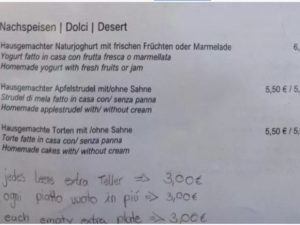 Nachspeisen | Dolci | Desert
Hausgemachter Naturjoghurt mit frischen Früchten oder Marmelade 6,
Yogurt fatto in casa con frutta fresca o marmellata
Homemade yogurt with fresh fruits or jam
Hausgemachter Apfelstrudel mit/ohne Sahne 5,50 € / 5,
Strudel di mela fatto in casa con/ senza panna
Homemade applestrudel with/ without cream
Hausgemachte Torten mit /ohne Sahne 5,50 € / 5,
Torte fatte in casa con/ senza panna
Homemade cakes with/ without cream
jedes leere extra Teller => 3,00€
ogni piatto vuoto in più => 3,00€
each empty extra plate => 3,00€